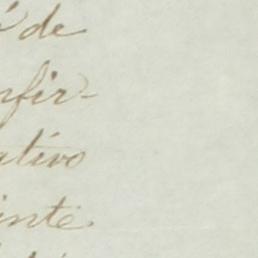 de
nfir-
ativo
inte